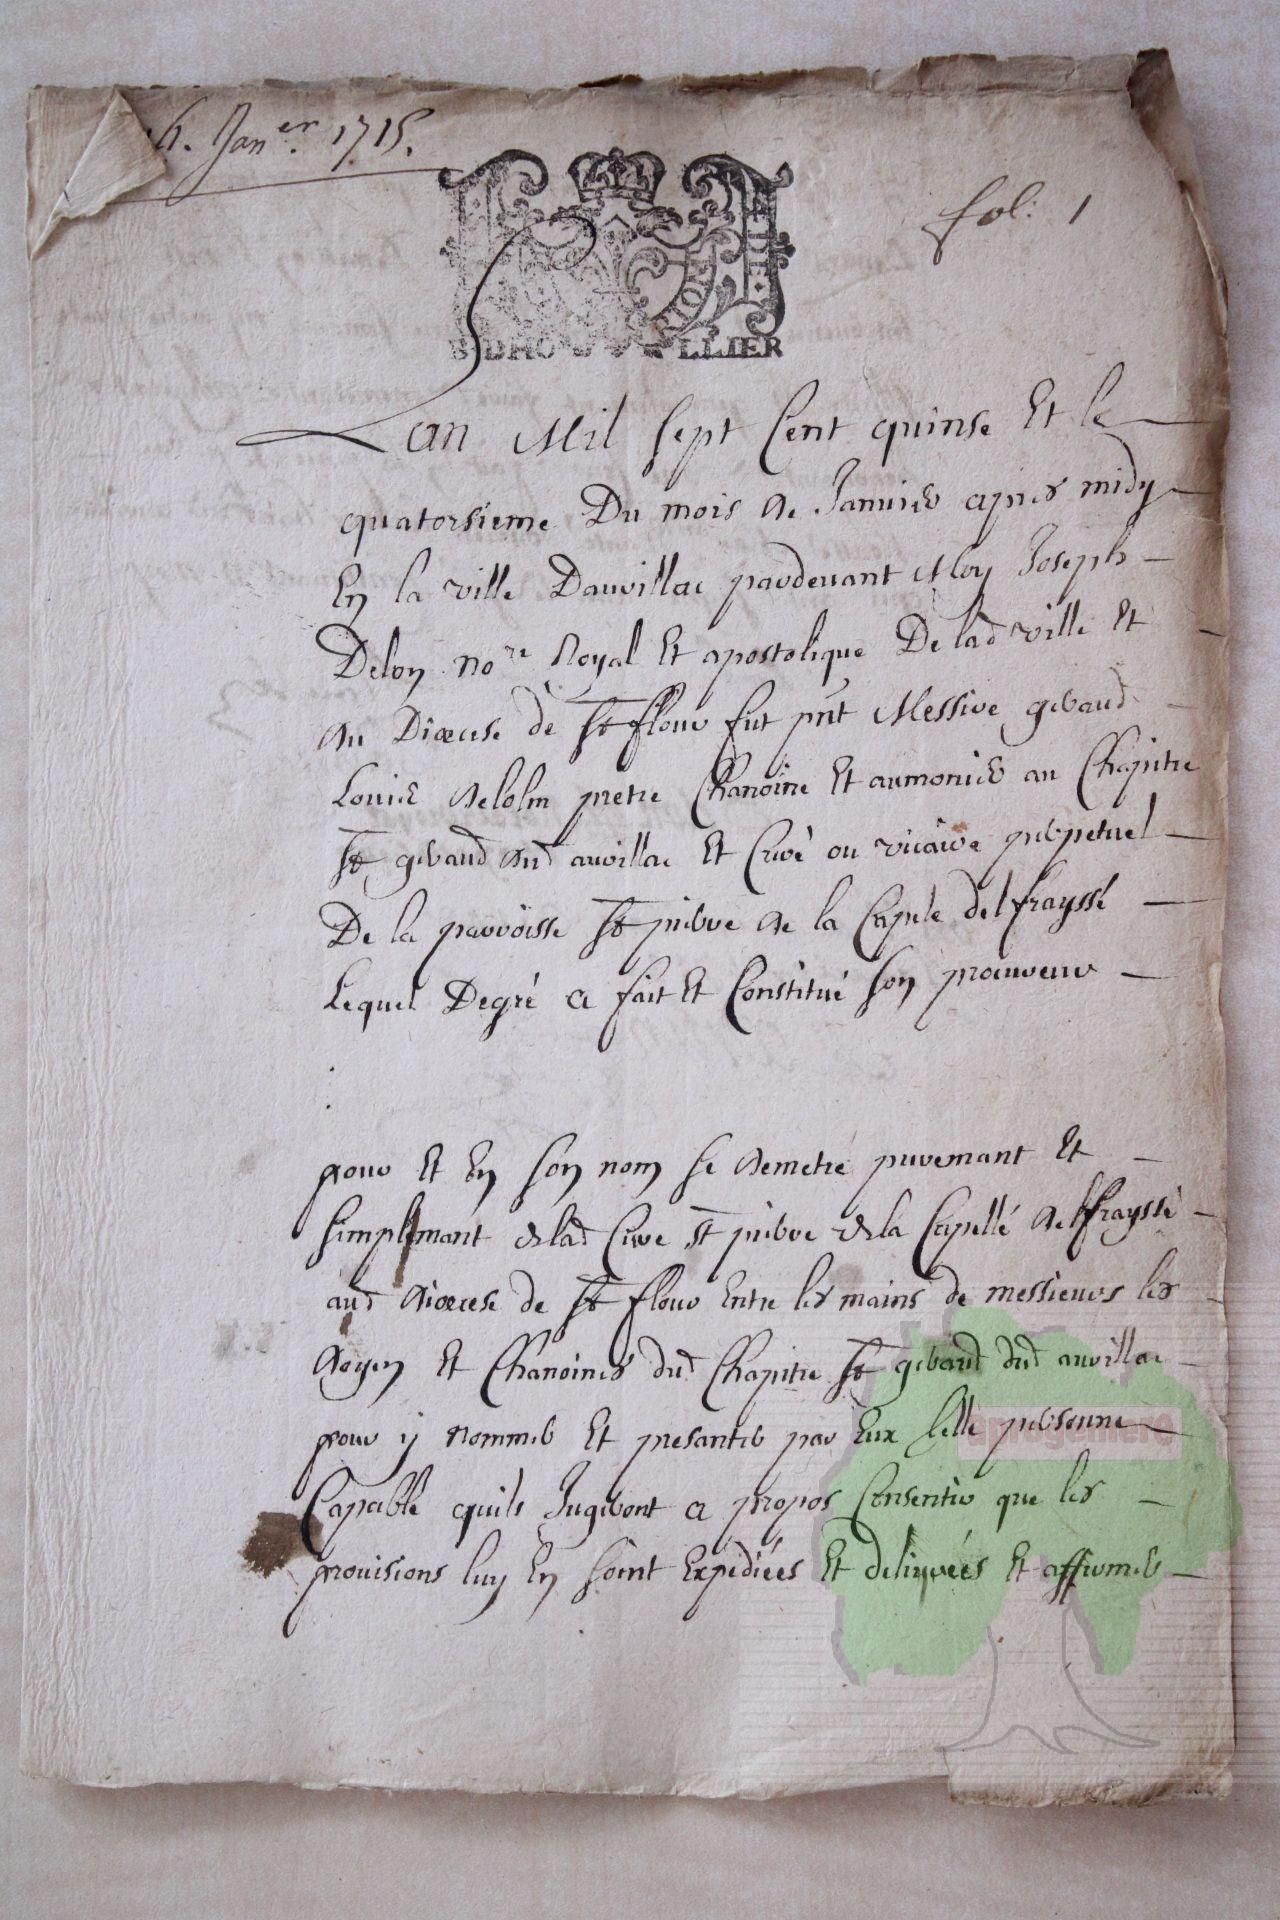 4. Jan^er. 1715.
fol: 1
DHO LLIER
Lan Mil sept Cent quinse Et le
quatorsieme Du mois de Januier apres midy
En la ville Dauvillac pardeuant Moy Joseph
Delon no^re Royal Et apostolique De lad ville Et
du Diœcese de St flour fut pnt Messire geraud
Louis delolm pretre Chanoine Et aumonier au Chapitre
St geraud dud auvillac Et Curé ou vicaire perpetuel
De la parroisse St pierre de la Capele delfraysse
Lequel Degré a fait Et Constitué son procureur
pour Et En son nom se demetre purement Et
simplemant de lad Cure St pierre de la Capelle delfraysse
aud diœcese de St flour Entre les mains de messieurs les
doyen Et Chanoines dud Chapitre St geraud dud auvillac
pour y nommer Et presanter par Eux telle personne
Capable quils Jugeront a propos Consentir que les
prouisions luy En soint Expediées Et deliurées Et affirmer
aprogemere